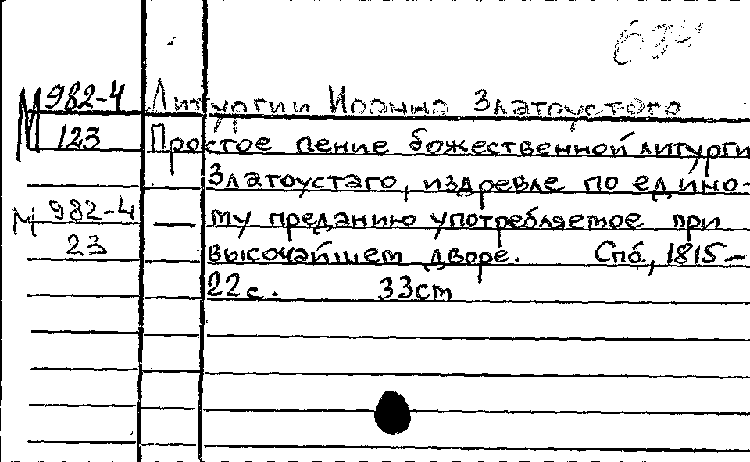 634
М 982-4 Литургии Иоанна Златоустаго
123 Простое пение божественной литурги
Златоустаго, издревле по едино-
М 982-4 му преданию употребляемое при
23 высочайшем дворе. Спб, 1815-
22с. 33cm